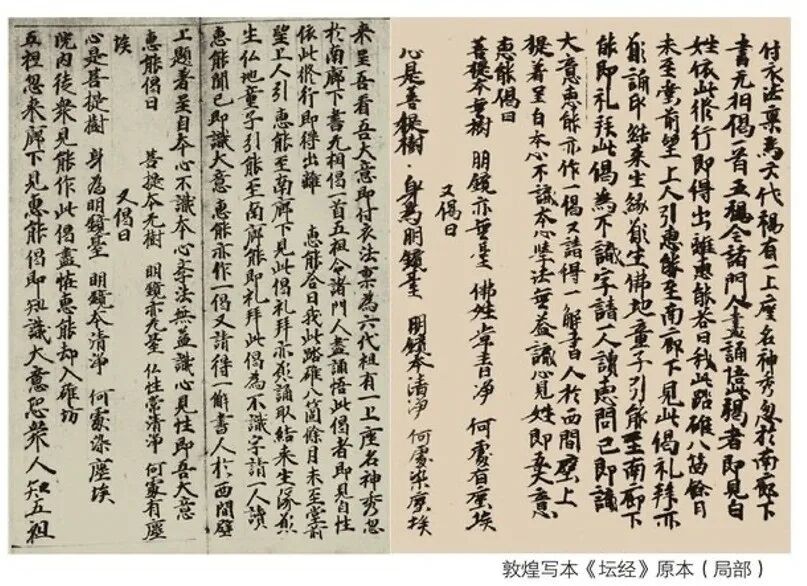 付衣法稟為六代褐有一上座名神秀忽於南廊下
書无相偈一首五褐令諸門人盡誦悟此偈者即見白
姓依此修行即得出離惠能答曰我此踏碓八箇餘月
未至堂前望上人引惠能至南廊下見此偈礼拜亦
願誦取結來生緣願生佛地童子引能至南廊下
能即礼拜此偈為不識字請一人讀惠問已即識
大意惠能亦作一偈又請得一解書人於西間壁上
提着呈自本心不識本心學法無益識心見姓即吾大意
惠能偈曰
菩提本無樹 明鏡亦無臺 佛姓常青净 何處有塵埃
又偈曰
心是菩提樹 身為明鏡臺 明鏡本清净 何處染塵埃
来呈吾看吾大意即付衣法稟為六代祖有一上座名神秀忽
於南廊下書无相偈一首五祖令諸門人盡誦悟此偈者即見自性
依此修行即得出離 惠能答曰我此踏碓八箇餘月未至堂前
望上人引惠能至南廊下見此偈礼拜亦願誦取結来生緣願
生仏地童子引能至南廊能即礼拜此偈為不識字請一人讀
惠能聞已即識大意惠能亦作一偈又請得一解書人於西間壁
上題著呈自本心不識本心學法无益識心見性即吾大意
惠能偈曰 菩提本无樹 明鏡亦无臺 仏性常清净 何處有塵
埃 又偈曰
心是菩提樹 身為明鏡臺 明鏡本清净 何處染塵埃
院内徒衆見能作此偈盡恠惠能却入碓坊
五祖忽来廊下見惠能偈即知識大意恐衆人知五祖
敦煌写本《坛经》原本（局部）